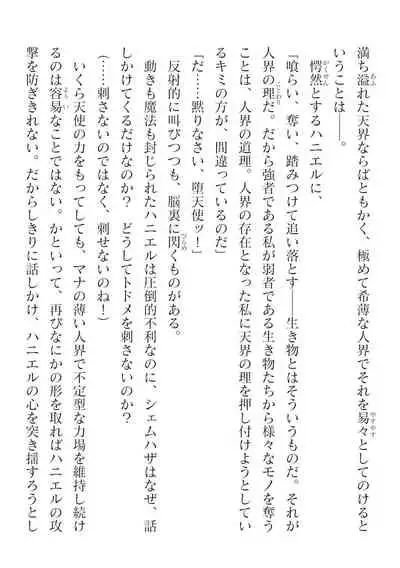 満ち溢れた天界ならばともかく、極めて希薄な人界でそれを易々としてのけると
いうことは――。
愕然とするハニエルに、
『喰らい、奪い、踏みつけて追い落とす――生き物とはそういうものだ。それが
人界の理だ。だから強者である私が弱者である生き物たちから様々なモノを奪う
ことは、人界の道理。人界の存在となった私に天界の理を押し付けようとしてい
るキミの方が、間違っているのだ』
「だ……黙りなさい、堕天使ッ！」
反射的に叫びつつも、脳裏に閃くものがある。
動きも魔法も封じられたハニエルは圧倒的不利なのに、シェムハザはなぜ、話
しかけてくるだけなのか？　どうしてトドメを刺さないのか？
（……刺さないのではなく、刺せないのね！）
いくら天使の力をもってしても、マナの薄い人界で不定型な力場を維持し続け
るのは容易なことではない。かといって、再びなにかの形を取ればハニエルの攻
撃を防ぎきれない。だからしきりに話しかけ、ハニエルの心を突き揺すろうとし